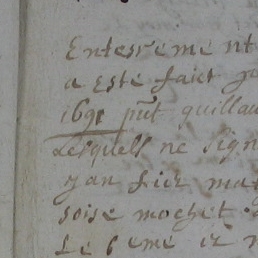 Enterrement
a este faict
1691 pñt guillau
Lesquels ne sign
jan fils ma
soise mochet
Le 6 eme